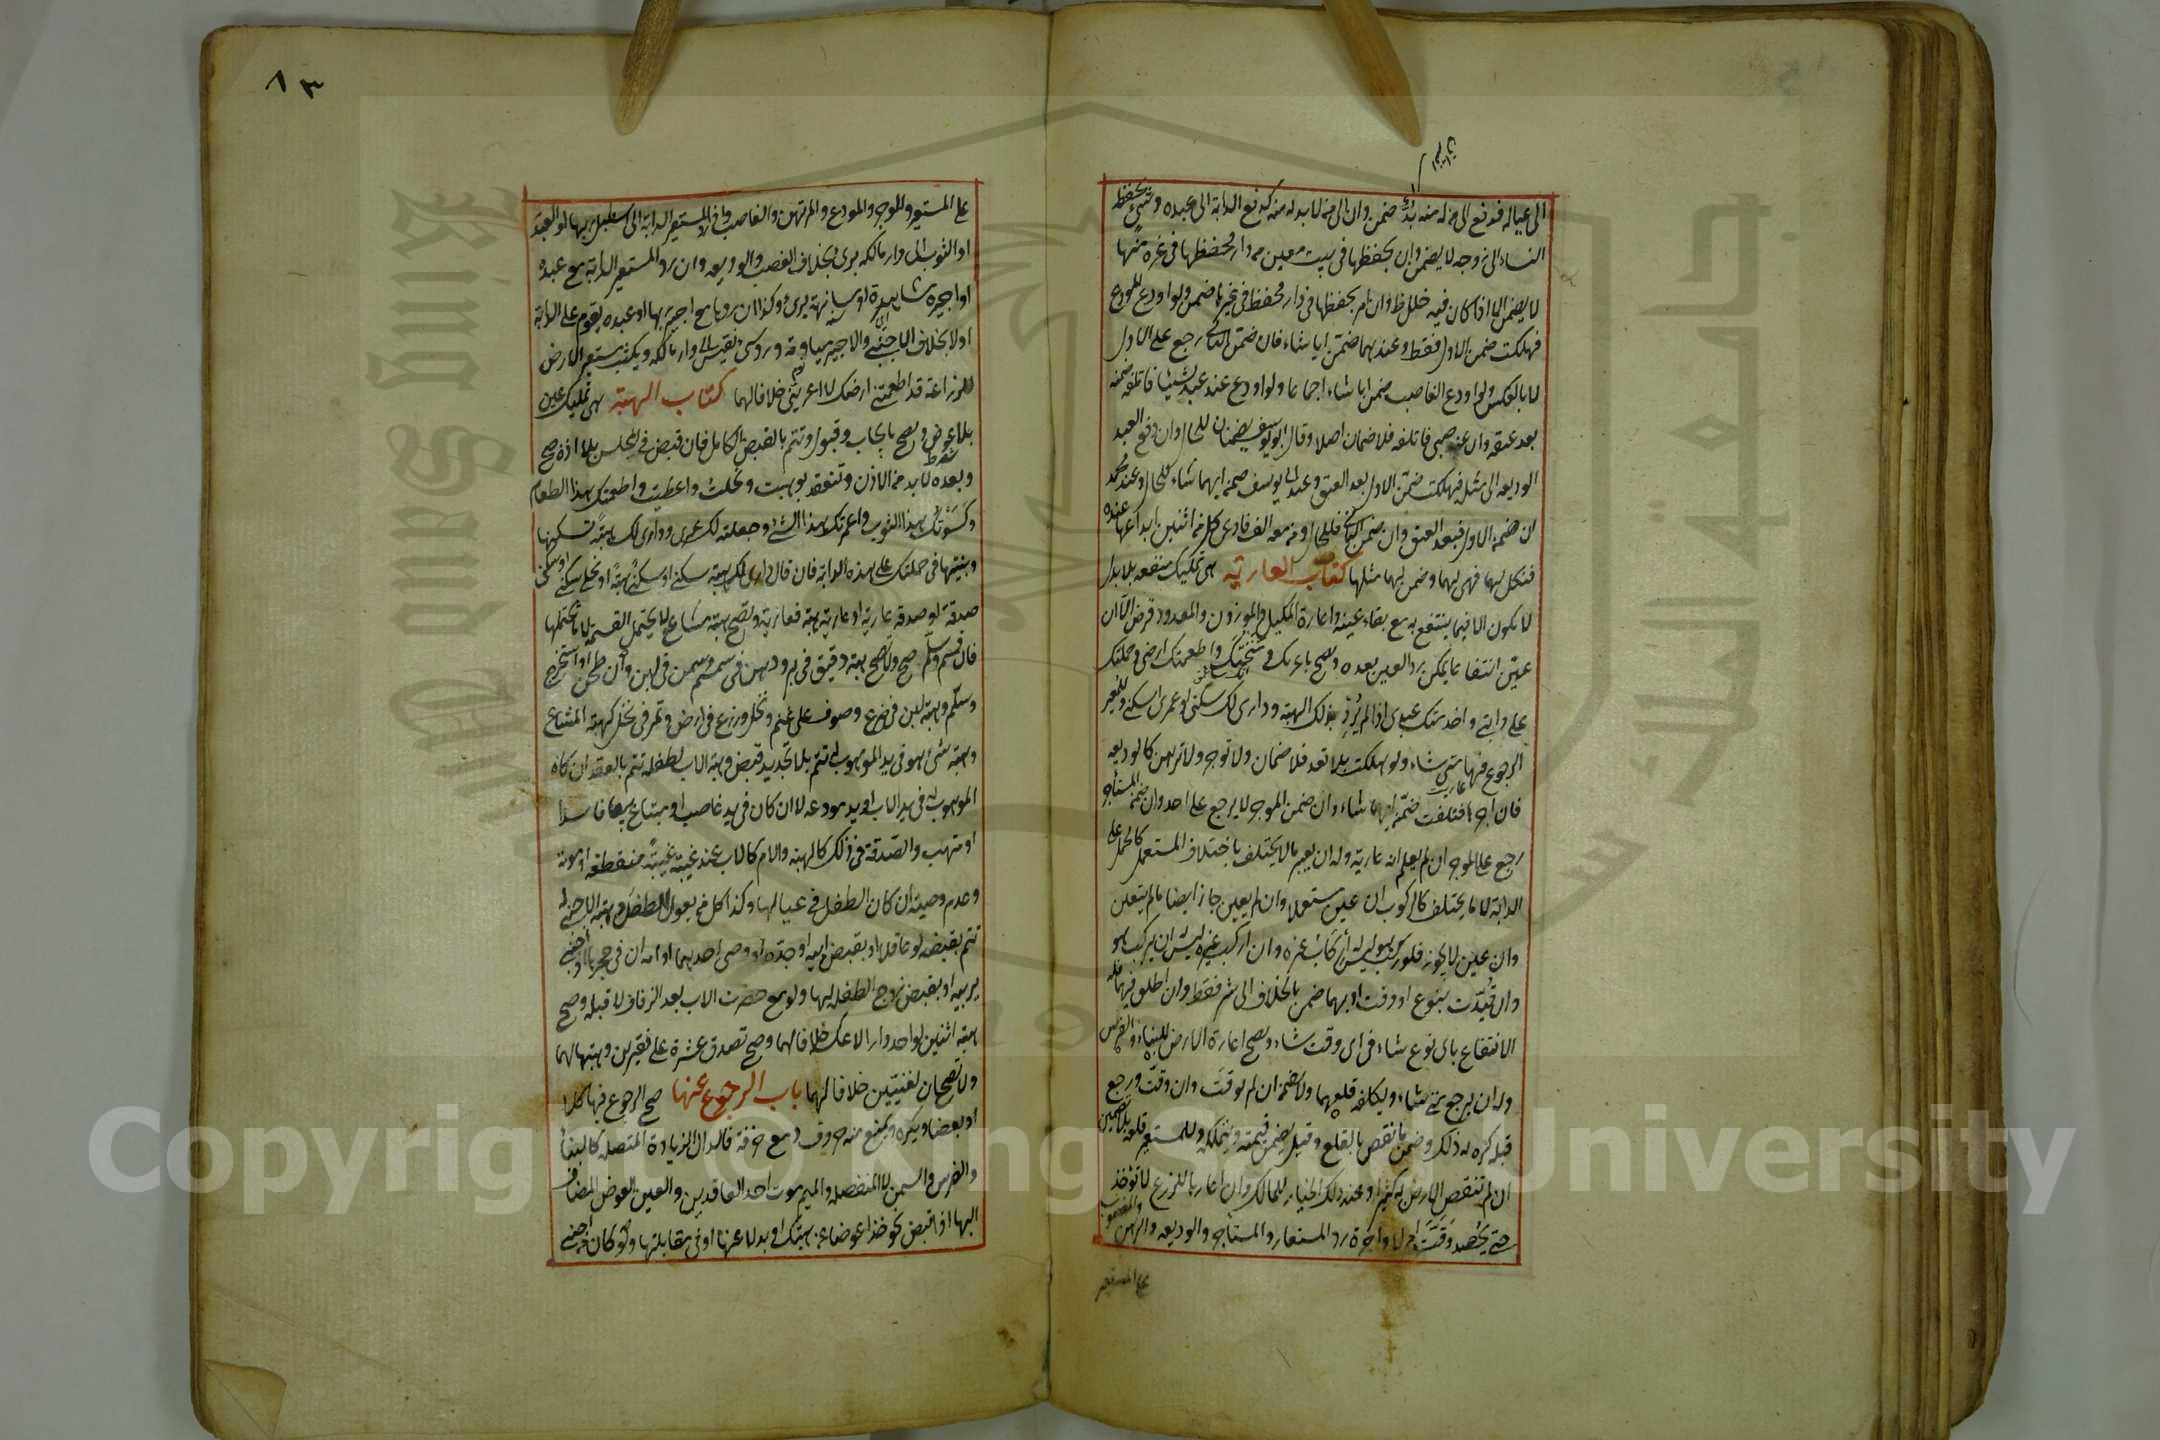 الى عياله فدفع الى من له منه بدّ ضمن وان الى من لا بد له منه كدفع الدابة الى عبده وشئ يحفظه
النساء الى زوجه لا يضمن وان بحفظها في بيت معين من دار فحفظها في غيره منها
لا يضمن الا اذا كان فيه خلل ظ وان امر بحفظها في دار فحفظ في غيرها ضمن ولو اودع المودع
فهلكت ضمن الاول فقط وعندهما ضمن ايا شاء فان ضمن الثاني رجع على الاول
لا بالعكس ولو اودع الغاصب ضمن ايا شاء اجماعا ولو اودع عند عبد شيئا فاتلفه ضمنه
بعد عتقه وان عند صبي فاتلفه فلا ضمان اصلا وقال ابو يوسف يضمنان للحال وان دفع العبد
الوديعه الى مثله فهلكت ضمن الاول بعد العتق وعند ابي يوسف ضمن ايهما شاء للحال وعند محمد
ان ضمن الاول فبعد العتق وان ضمن الثاني فللحال ومن معه الف فادعى كل من اثنين ايداعها عنده
فنكل لهما فهي لهما وضمن لهما مثلها كتاب العارية هي تمليك منفعه بلا بدل
لا يكون الا فيما ينتفع به مع بقاء عينه واعارة المكيل والموزون والمعدود قرض الا ان
عيّن انتفاعا يمكن رد العين بعده ويصح باعرتك ومنحتك واطعمتك ارضي وحملتك
على دابتي واخدمتك عبدي اذا لم يُرد بذلك الهبة وداري لك سكنى او عمرى سكنى وللمعير
الرجوع فيها متى شاء ولو هلكت بلا تعد فلا ضمان ولا توجر ولا ترهن كالوديعه
فان اجرها فتلفت ضمن ايهما شاء وان ضمن الموجر لا يرجع على احد وان ضمن المستأجر
رجع على الموجر ان لم يعلم انه عارية وله ان يعير ما لا يختلف باختلاف المستعمل كالحمل على
الدابة لا ما يختلف كالركوب ان عين مستعملا وان لم يعين جاز ايضا ما لم يتعين
وان عين لا يجوز فلو ركب هو ليس له اركاب غيره وان اركب غيره ليس له ان يركب هو
وان قيدت بنوع او وقت او بهما ضمن بالخلاف الى شر فقط وان اطلق فيهما فله
الانتفاع باي نوع شاء في اى وقت شاء ويصح اعارة الارض للبناء والغرس
وله ان يرجع متى شاء ويكلفه قلعهما ولا يضمن ان لم يوقت وان وقت ورجع
قبله كره له ذلك وضمن ما نقص بالقلع وقيل يضمن قيمته ويتملكه وللمستعير قلعه بلا تضمين
ان لم تنقص الارض به كثيرا وعند ذلك الخيار للمالك وان اعارها للزرع لا تؤخذ
حتى يحصد وقّت ام لا واجرة رد المستعار والمستأجر والوديعه والرهن والمغصوب
على المستعير
٨٣
على المستعير والموجر والمودع والمرتهن والغاصب واذا رد المستعير الدابة الى اسطبل ربها او العبد
او الثوب الى دار مالكه برئ بخلاف الغصب والوديعه وان رد المستعير الدابة مع عبده
او اجيره مشاهرة او مسانهة برئ وكذا ان ردها مع اجير ربها او عبده يقوم على الدابة
او لا بخلاف الاجنبي والاجير مياومة ورد شئ نفيس الى دار مالكه ويكتب مستعير الارض
للزراعة قد اطعمتني ارضك لا اعرتني خلافا لهما كتاب الهبة هي تمليك عين
بلا عوض ويصح بايجاب وقبول وتتم بالقبض الكامل فان قبض في المجلس بلا اذن صح
وبعده لا بد من الاذن وتنعقد بوهبت ونحلت واعطيت واطعمتك هذا الطعام
وكسوتك هذا الثوب واعمرتك هذا الشئ وجعلته لك عمرى وداري لك هبة تسكنها
وبنيتها في حملتك على هذه الدابة فان قال داري لك هبة سكنى او سكنى هبة او نحلى سكنى او سكنى
صدقة او صدقة عارية او عارية هبة فعارية وتصح هبة مشاع لا يحتمل القسمة لا ما يحتملها
فان قسم وسلم صح ولا تصح هبة دقيق في بر ودهن في سمسم وسمن في لبن وان طحن او استخرج
وسلم وهبة لبن في ضرع وصوف على غنم ونخل وزرع في ارض وتمر في نخل كهبة المشاع
وهبة شئ هو في يد الموهوب له تتم بلا تجديد قبض وهبة الاب لطفله تتم بالعقد ان كان
الموهوب في يد الاب او يد مودعه لا ان كان في يد غاصب او مبتاع بيعا فاسدا
او متهب والصدقة في ذلك كالهبة والام كالاب عند غيبته غيبة منقطعة او موته
وعدم وصيته ان كان الطفل في عيالها وكذا كل من يعول الطفل وهبة الاجنبي له
تتم بقبضه لو عاقلا او بقبض ابيه او جده او وصى احدهما او امه ان في حجرها او اجنبي
يربيه او بقبض زوج الطفله لها ولو مع حضرت الاب بعد الزفاف لا قبله وصح
هبة اثنين لواحد دار الا عكسه خلافا لهما وصح تصدق عشرة على فقيرين وهبتها لهما
ولا تصحان لغنيين خلافا لهما باب الرجوع عنها صح الرجوع فيها كلا
او بعضا ويكره ويمنع منه حروف دمع خزقه فالدال الزيادة المتصله كالبناء
والغرس والسمن لا المنفصله والميم موت احد العاقدين والعين العوض المضاف
اليها اذا قبض نحو خذ عوضا عن هبتك او بدلا عنها او في مقابلتها ولو كان من اجنبي
Copyright © King Saud University
King Saud University